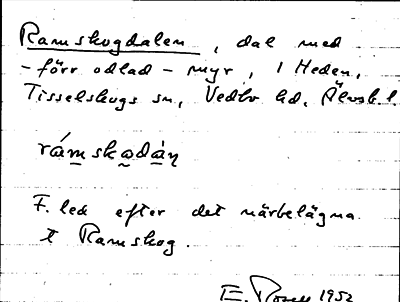 Ramskogdalen, dal med
- förr odlad - myr, i Heden,
Tisselskogs sn, Vedbo hd, Älvsb l.
rámskodán
F. led efter det närbelägna
t Ramskog.
E. 1952